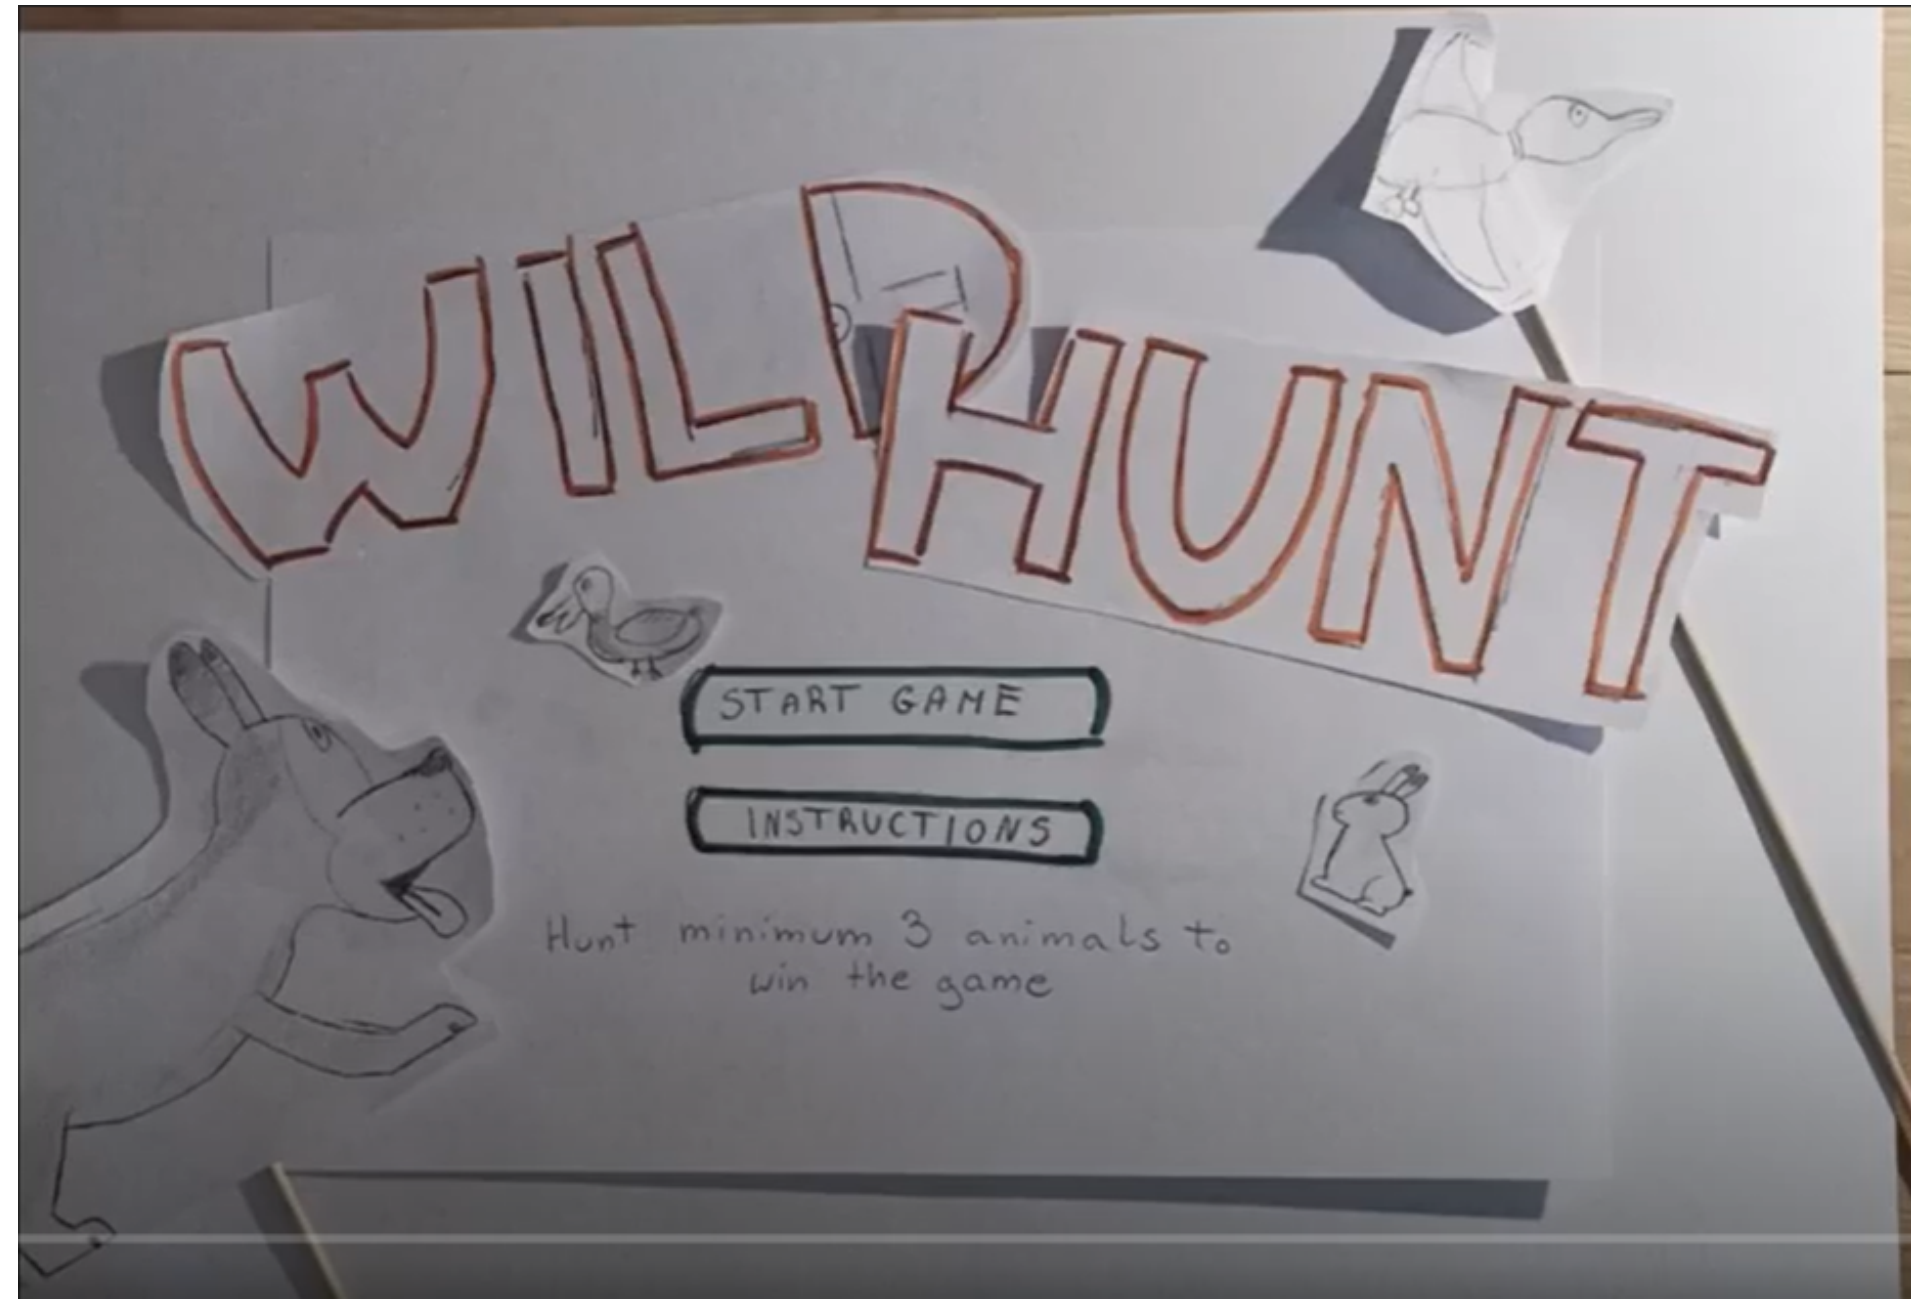 WILD
HUNT
START GAME
INSTRUCTIONS
Hunt minimum 3 animals to
win the game